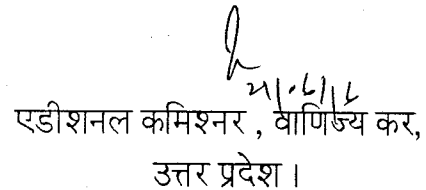 एडीशनल कमिश्नर , वाणिज्य कर,
उत्तर प्रदेश ।